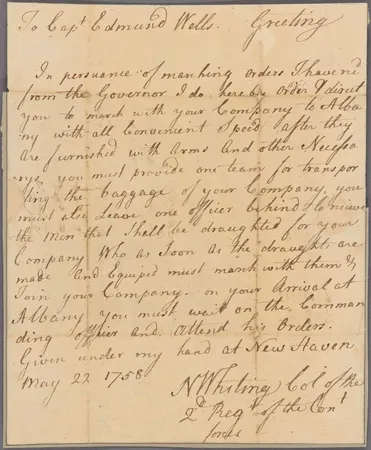 To Capt Edmund Wells. Greeting
In persuance of marching orders I have recd
from the Governor I do hereby order & direct
you to march with your Company to Alba
ny with all Convenient Speed after they
are furnished with Arms And other Necessa
rys, you must provide one team for transpor
ting the baggage of your Company, you
must also Leave one officer behind to receive
the men that Shall be draughted for your
Company Who as Soon as the draught are
made and Equiped must march with them &
Join your Company. on your Arrival at
Albany you must wait on the Comman
ding officer and Attend his Orders.
Given under my hand at New Haven
May 22 1758
N Whiting Col of the
2d Regt of the Cont
forces